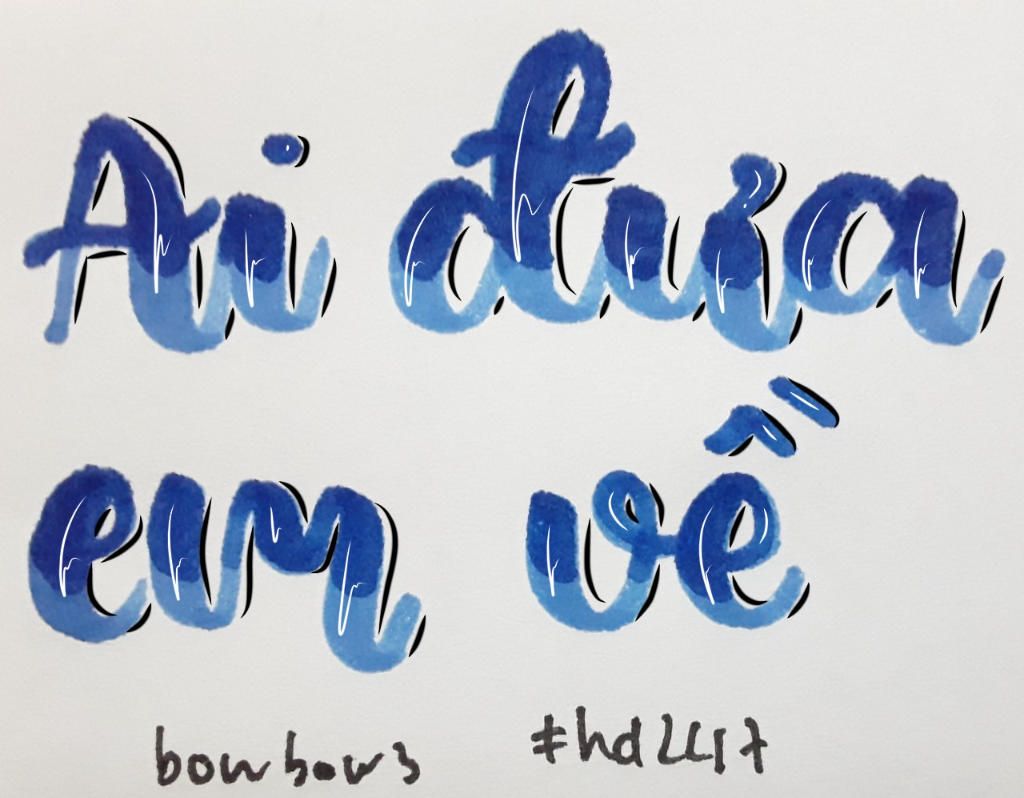 Ai đưa
em về
bowbow3 #hd2LL17